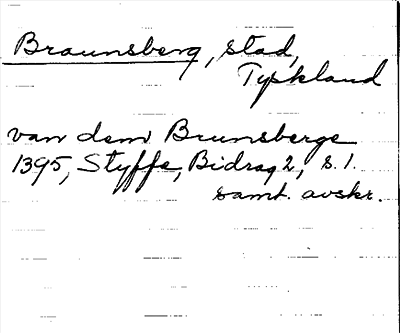 Braunsberg, stad,
Tyskland
van dem Brunsberge
1395, Styffe, Bidrag 2, s. 1.
samt. avskr.